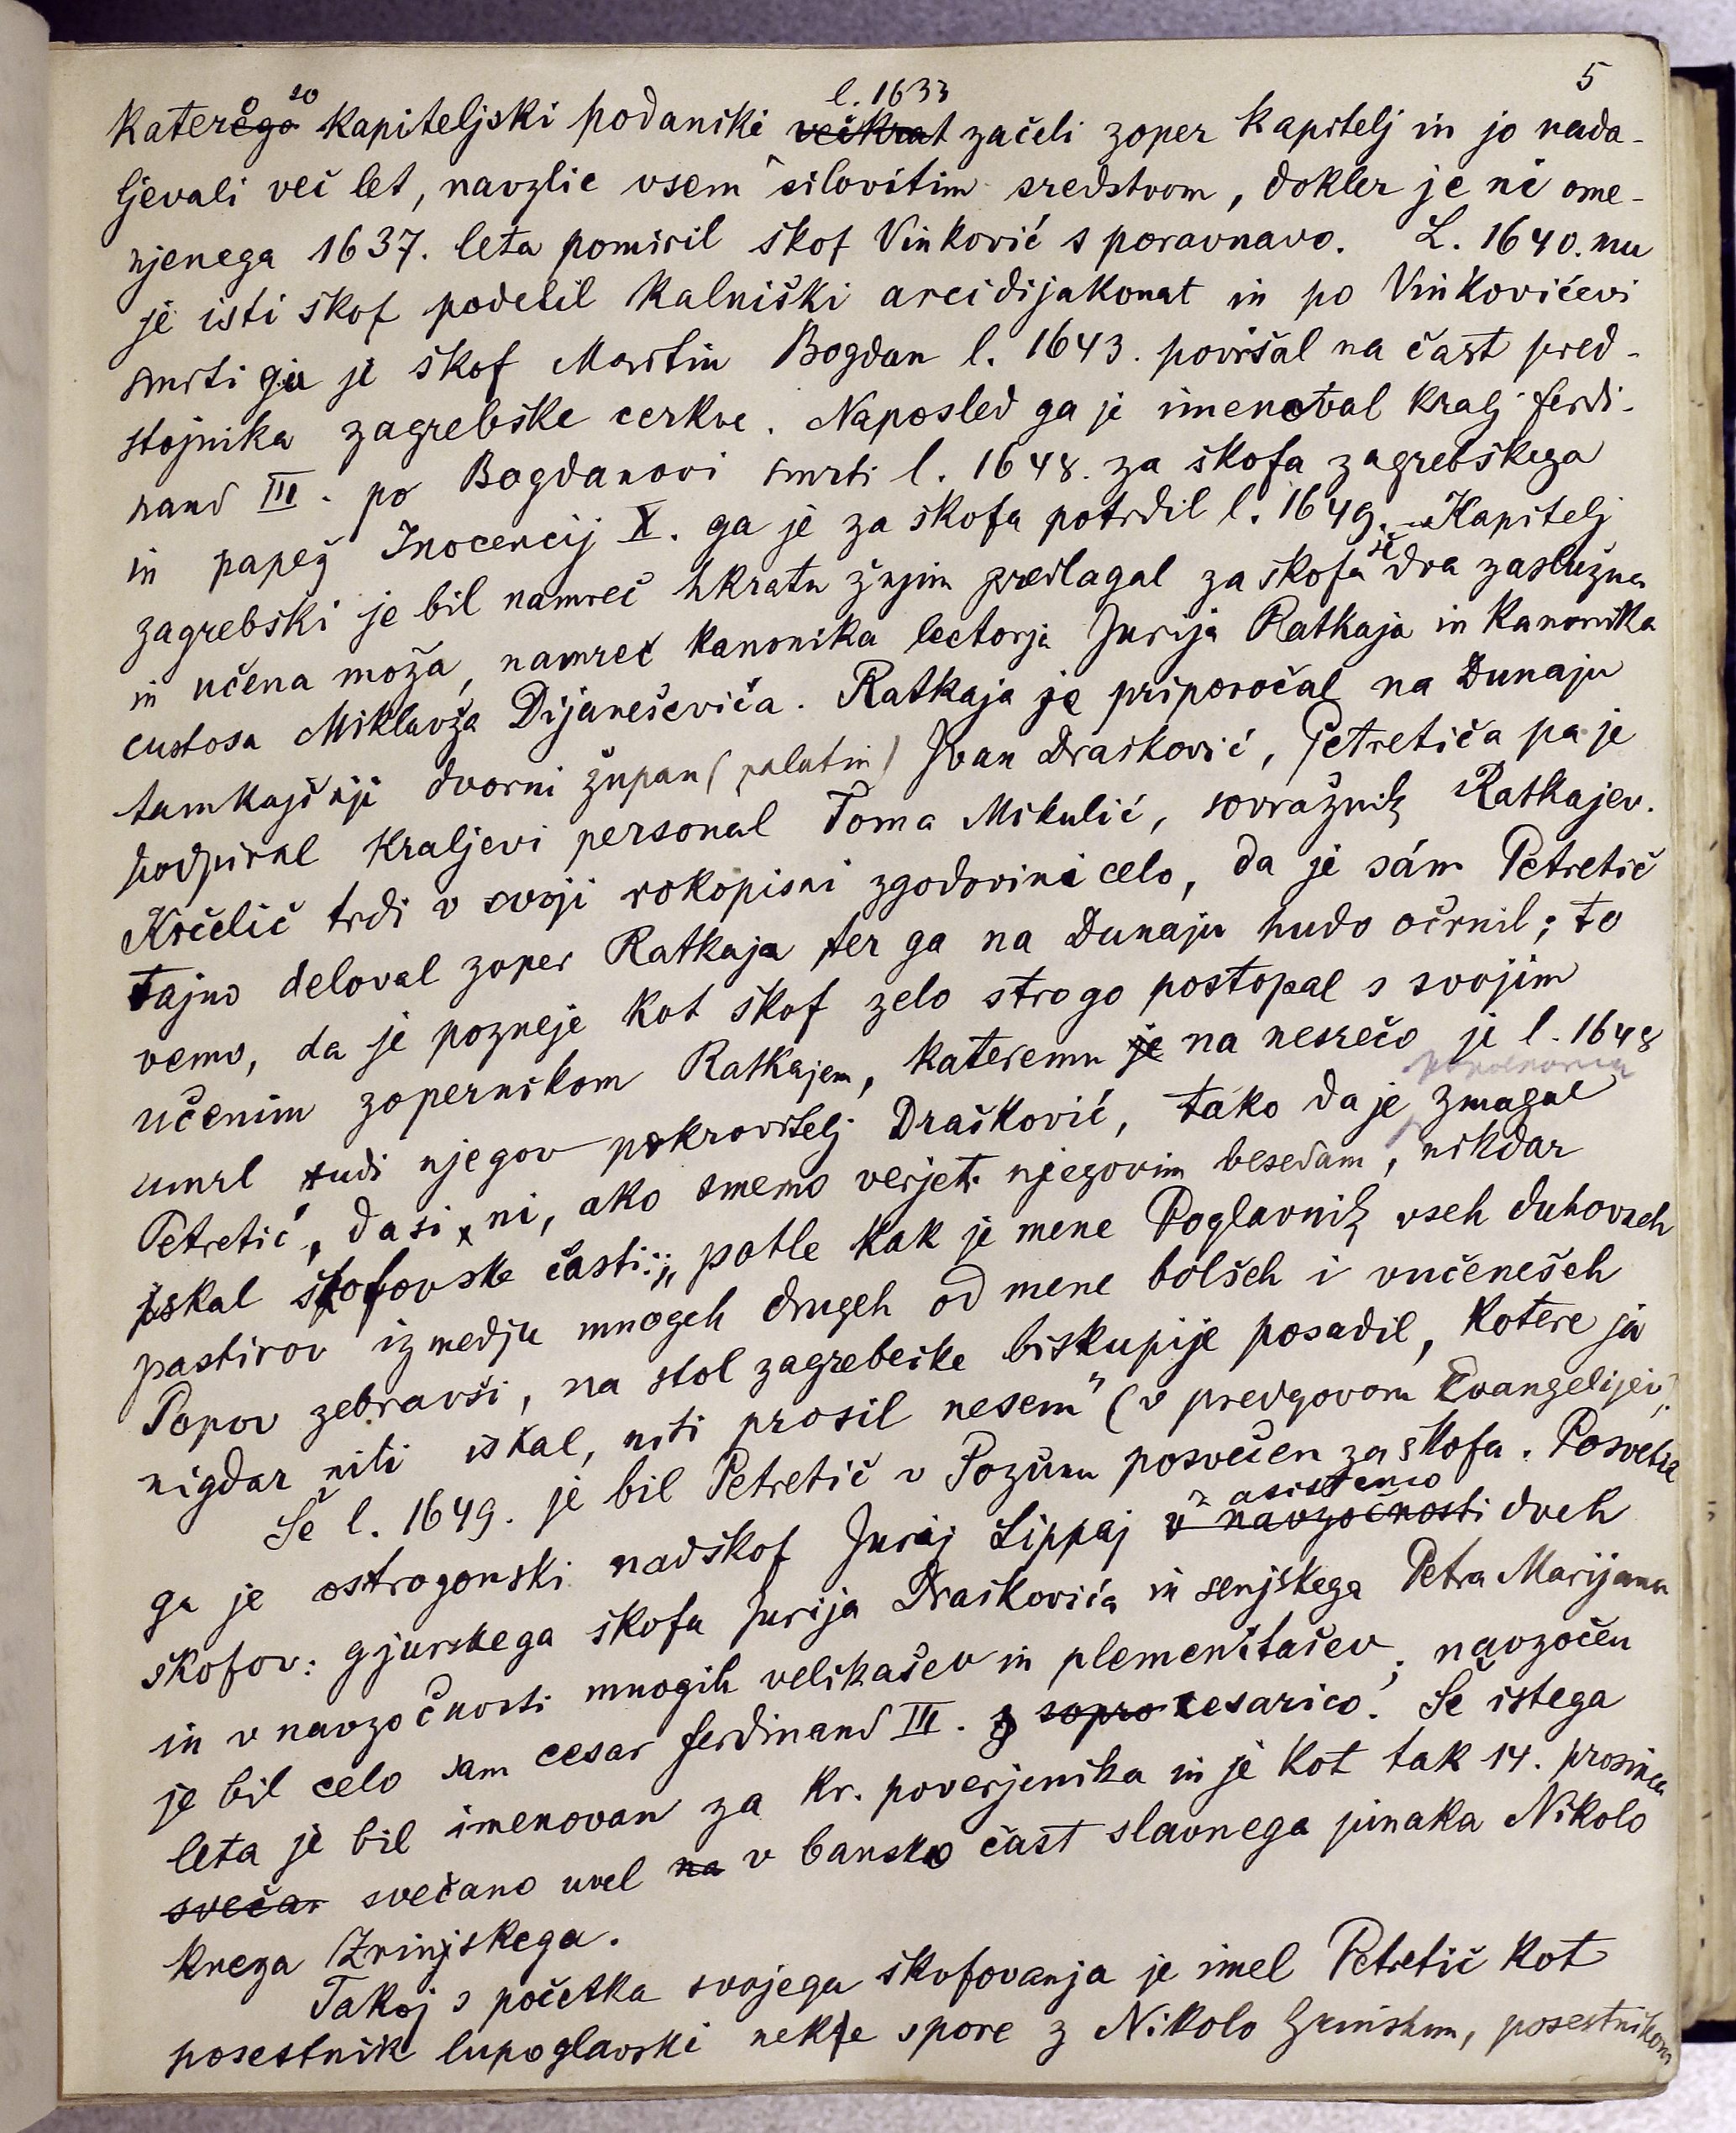 5
katerega so kapiteljski podaniki večkrat l. 1633 začeli zoper kapitelj in jo nada-
ljevali več let, navzlic vsem silovitim sredstvom, dokler je ni ome-
njenega 1637. leta pomiril škof Vinković s poravnavo. L. 1640. mu
je isti škof podelil kalniški arcidijakonat in po Vinkovićevi
smrti ga je škof Martin Bogdan l. 1643. povišal na čast pred-
stojnika zagrebške cerkve. Naposled ga je imenoval kralj Ferdi-
nand III. po Bogdanovi smrti l. 1648. za škofa zagrebškega
in papež Inocencij X. ga je za škofa potrdil l. 1649. – Kapitelj
zagrebški je bil namreč hkratu žnjim predlagal za škofa še dva zaslužna
in učena moža, namreč kanonika lectorja Jurija Ratkaja in kanonika
custosa Miklavža Dijaneševiča. Ratkaja je priporočal na Dunaju
tamkajšnji dvorni župan (palatin) Ivan Drašković, Petretića pa je
podpiral kraljevi personal Toma Mikulić, sovražnik Ratkajev.
Krčelič trdi v svoji rokopisni zgodovini celo, da je sám Petretič
tajno deloval zoper Ratkaja ter ga na Dunaju hudo očrnil; to
vemo, da je pozneje kot škof zelo strogo postopal s svojim
učenim zopernikom Ratkajem, kateremu je na nesrečo je l. 1648
umrl tudi njegov pokrovitelj Drašković, tako da je zmagal
Petretić, dasi ni, ako smemo verjeti njegovim besedam, nikdar
iskal škofovske časti: „potle kak je mene Poglavnik vseh duhovneh
pastirov izmedju mnogeh drugeh od mene bolšeh i vučenešeh
Popov zebravši, na stol zagrebečke biskupije posadil, kotere ja
nigdar niti iskal, niti prosil nesem“ (v predgovoru Evangelijev).
Še l. 1649. je bil Petretič v Požunu posvečen za škofa. Posvetil
ga je ostrogonski nadškof Jurij Lippaj v navzočnosti z asistenco dveh
škofov: gjurskega škofa Jurija Draškovića in senjskega Petra Marijana
in v navzočnosti mnogih velikašev in plemenitašev; navzočen
je bil celo sam cesar Ferdinand III. z sopro cesarico. Še istega
leta je bil imenovan za kr. poverjenika in je kot tak 14. prosinca
sveča. svečano uvel na v bansko čast slavnega junaka Nikolo
kneza Zrinjskega.
Takoj s početka svojega škofovanja je imel Petretič kot
posestnik lupoglavski nekje spore z Nikolo Zrinskim, posestnikom